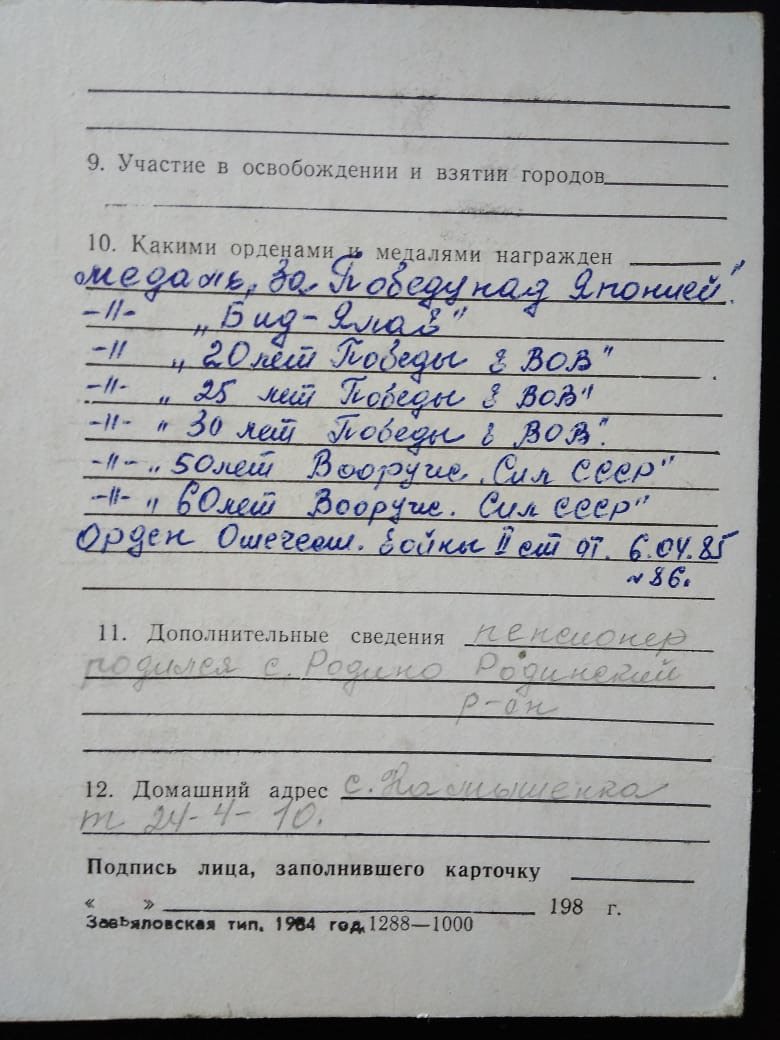 9. Участие в освобождении и взятии городов
10. Какими орденами и медалями награжден
медаль „За Победу над Японией"
-"- „Бид-Ялав"
-"- „20 лет Победы в ВОВ"
-"- „25 лет Победы в ВОВ"
-"- „30 лет Победы в ВОВ".
-"- „50 лет Вооруж. Сил СССР"
-"- „60 лет Вооруж. Сил СССР"
Орден Отечест. Войны II ст от. 6.04.85
№86.
11. Дополнительные сведения пенсионер
родился с. Родино Родинский
р-он
12. Домашний адрес с. Камышенка
т 24-4-10.
Подпись лица, заполнившего карточку
« » 198 г.
Завьяловская тип. 1984 год. 1288—1000